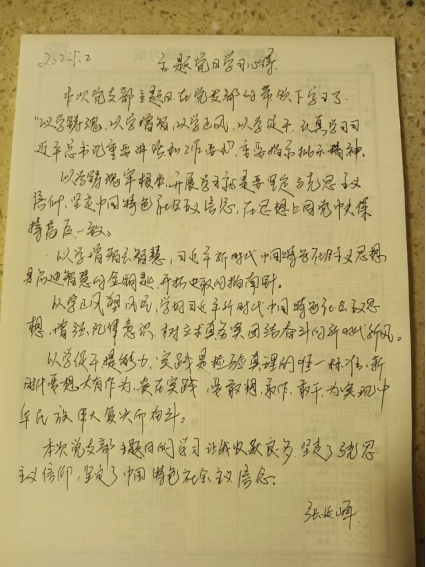 2024.2
主题党日学习心得
本次党支部主题日在党支部的带领下学习了
“以学铸魂、以学增智、以学正风、以学促干、认真学习习
近平总书记重要讲话和工作 重要指示批示精神。
以学铸魂 开展学习就是要坚定马克思主义
信仰,坚定中国特色社会主义信念,在思想上同党中央保
持高度一致。
以学增智 智慧,习近平新时代中国特色社会主义思想
是 智慧的金钥匙 的指南针。
以学正风 学好习近平新时代中国特色社会主义思
想,增强纪律意识,树立求真务实团结奋斗的新时代新风。
以学促干提能力,实践是检验真理的唯一标准,新
时代要想大有作为,贵在实践,要敢想,敢作,敢干,为实现中
华民族伟大复兴而奋斗。
本次党支部主题日的学习让我收获良多,坚定了马克思
主义信仰,坚定了中国特色社会主义信念。
张 峰